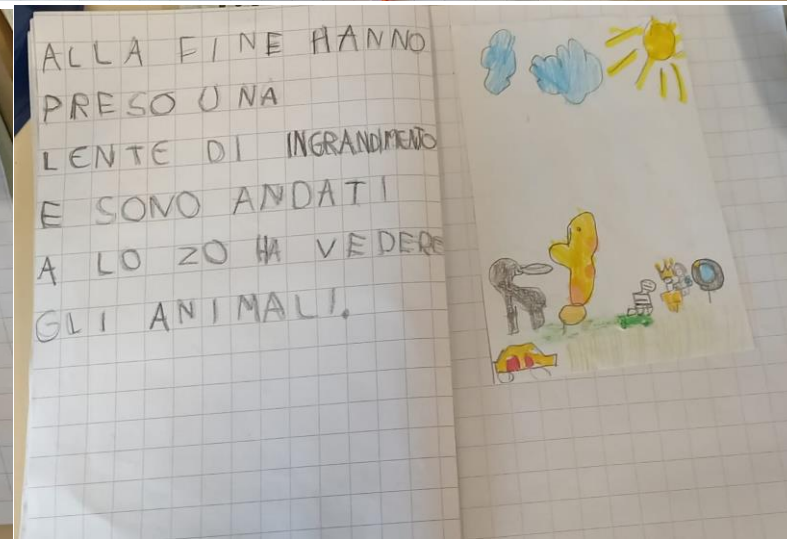 ALLA FINE HANNO
PRESO UNA
LENTE DI INGRANDIMENTO
E SONO ANDATI
A LO ZO HA VEDERE
GLI ANIMALI.